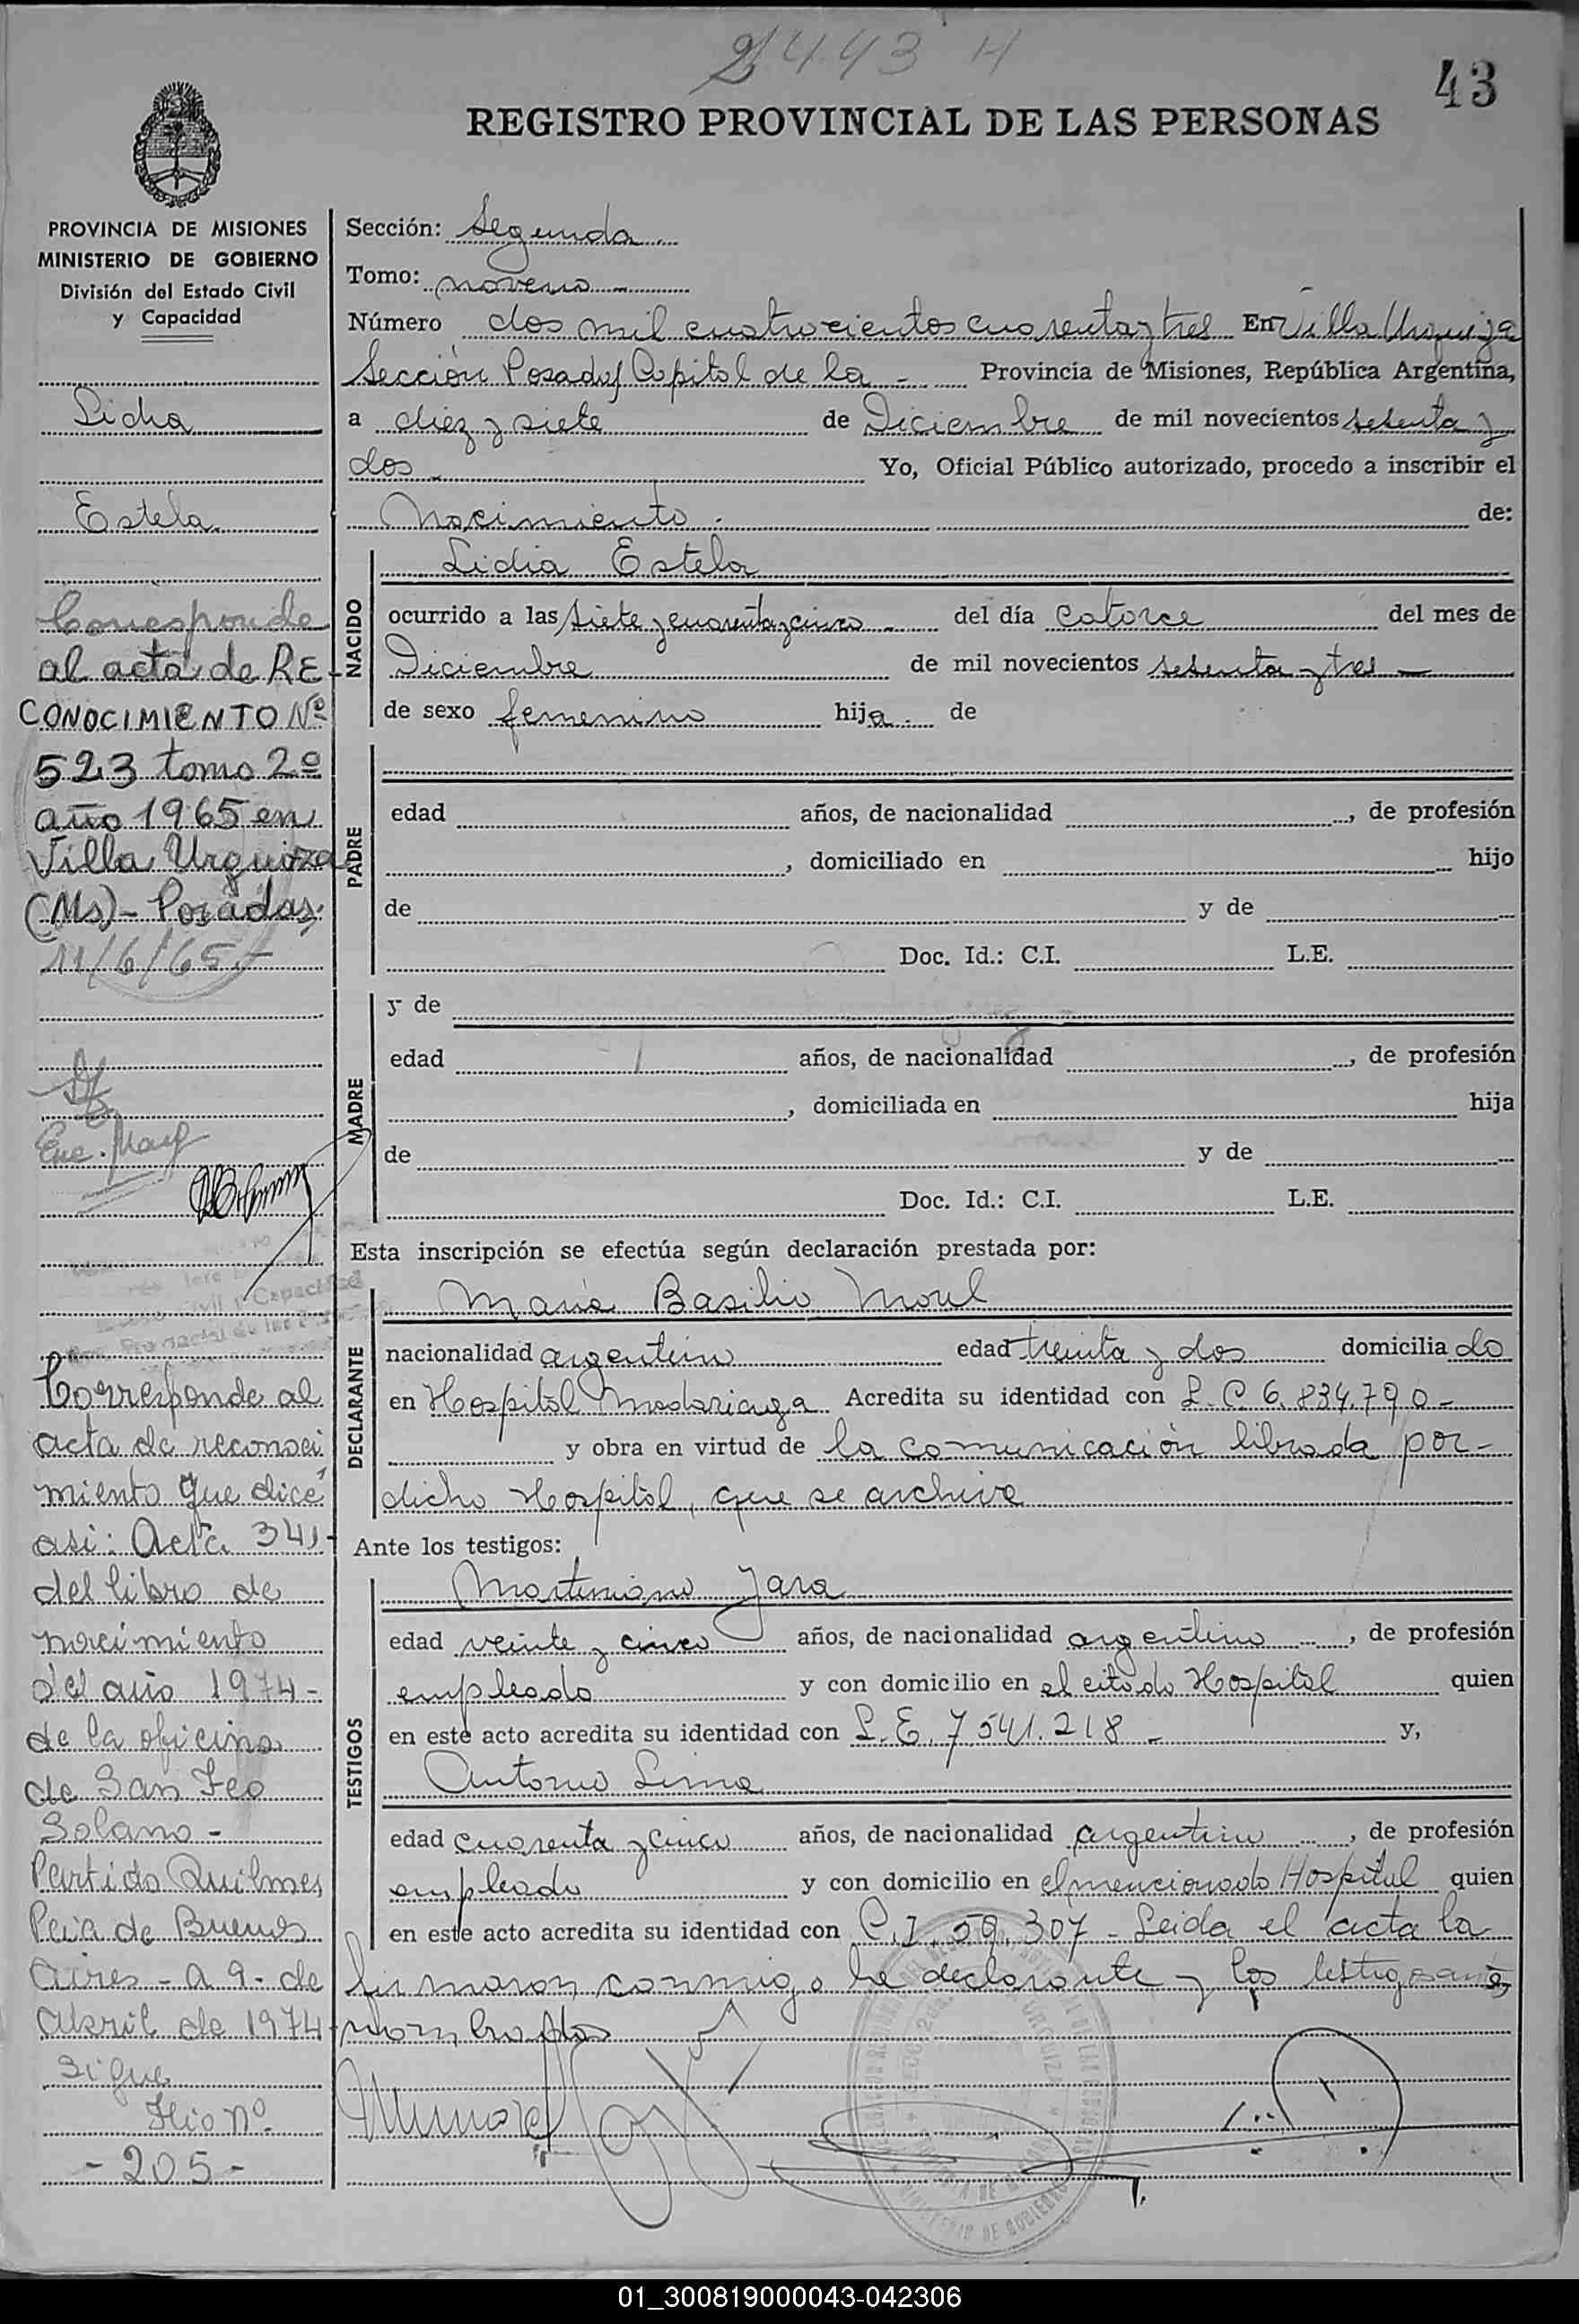 2443 H
43
REGISTRO PROVINCIAL DE LAS PERSONAS
PROVINCIA DE MISIONES
MINISTERIO DE GOBIERNO
División del Estado Civil
y Capacidad
Lidia
Estela
Corresponde
al acta de RE-
CONOCIMIENTO Nº
523 tomo 2º
año 1965 en
Villa Urquiza
(Ms)- Posadas
11/6/65.-
Corresponde al
acta de reconoci
miento que dice
asi: Acta 341-
del libro de
nacimiento
del año 1974-
de la oficina
de San Fco
Solano -
Partido Quilmes
Pcia de Buenos
Aires - a 9 - de
Abril de 1974
Sigue
Flio nº
- 205 -
Sección: Segunda
Tomo: noveno
Número dos mil cuatrocientos cuarenta y tres En Villa Urquiza
Sección Posadas Capital de la - Provincia de Misiones, República Argentina,
a diez y siete de Diciembre de mil novecientos setenta y
dos Yo, Oficial Público autorizado, procedo a inscribir el
Nacimiento de:
NACIDO
Lidia Estela
ocurrido a las siete y cuarenta y cinco del día catorce del mes de
Diciembre de mil novecientos setenta y tres
de sexo femenino hija de
PADRE
edad años, de nacionalidad , de profesión
, domiciliado en hijo
de y de
Doc. Id.: C.I. L.E.
MADRE
y de
edad años, de nacionalidad , de profesión
, domiciliada en hija
de y de
Doc. Id.: C.I. L.E.
Esta inscripción se efectúa según declaración prestada por:
DECLARANTE
Maria Basilio
nacionalidad argentin edad treinta y dos domiciliado
en Hospital Madariaga Acredita su identidad con L.C. 6.834.790-
y obra en virtud de la comunicación librada por-
dicho Hospital, que se archiva
Ante los testigos:
TESTIGOS
Martiniano Jara
edad veinte y cinco años, de nacionalidad argentino , de profesión
empleado y con domicilio en el citado Hospital quien
en este acto acredita su identidad con L.E. 7541.218 - y,
Antonio Lima
edad cuarenta y cinco años, de nacionalidad argentino , de profesión
empleado y con domicilio en el mencionado Hospital quien
en este acto acredita su identidad con C.I. 59.307 - Leida el acta la
firmaron conmigo la declarante y los testigos ante
nombrados
01_300819000043-042306